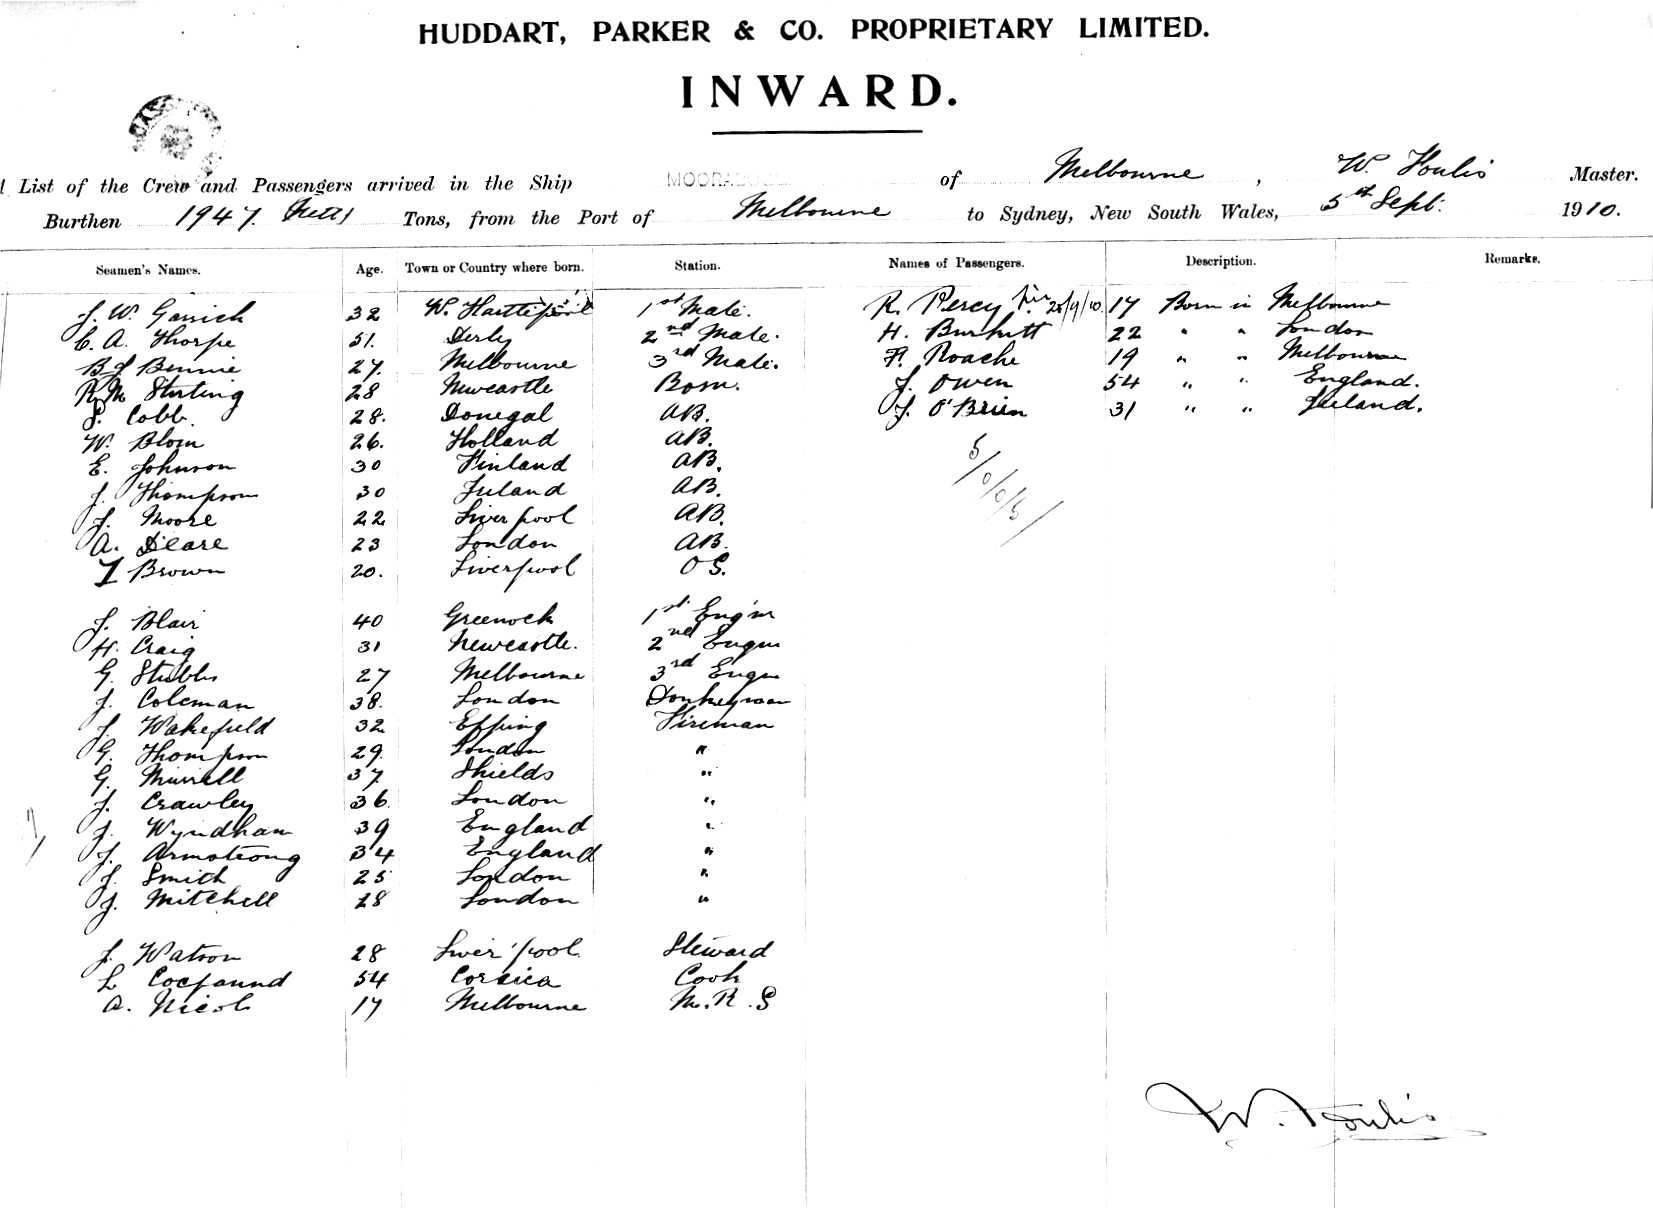 HUDDART, PARKER & CO. PROPRIETARY LIMITED.
INWARD.
List of the Crew and Passengers arrived in the Ship of Melbourne, W. Foulis Master.
Burthen 1947 Tons, from the Port of Melbourne to Sydney, New South Wales, 5th Sept: 1910.
Seamen's Names. Age. Town or Country where born. Station. Names of Passengers. Description. Remarks.
J. W. Garrick 32 W. Hartlepool 1st Mate. R. Percy 17 Born in Melbourne
C. A. Thorpe 51. Derby 2nd Mate. H. Burkitt 22 " " London
B J Bennie 27. Melbourne 3rd Mate. F. Roache 19 " " Melbourne
R. M Stirling 28 Newcastle Bosn. J. Owen 54 " " England.
S. Cobb. 28. Donegal AB. J. O'Brien 31 " " Ireland.
W. Blom 26. Holland AB.
E. Johnson 30 Finland AB.
J. Thompson 30 Ireland AB.
J. Moore 22 Liverpool AB.
A. Deare 23 London AB.
T Brown 20. Liverpool OS.
J. Blair 40 Greenock 1st Eng'nr
H. Craig 31 Newcastle. 2nd Engnr
G. Stubbs 27 Melbourne 3rd Engnr
J. Coleman 38. London Donkeyman
J. Wakefield 32 Epping Fireman
G. Thompson 29. London "
G. Murrell 37. Shields "
J. Crawley 36. London "
J. Wyndham 39 England "
J. Armstrong 34 England "
J. Smith 25 London "
J. Mitchell 28 London "
J. Watson 28 Liverpool Steward
L 54 Corsica Cook
A. Nicol 17 Melbourne M.R.S
W. Foulis